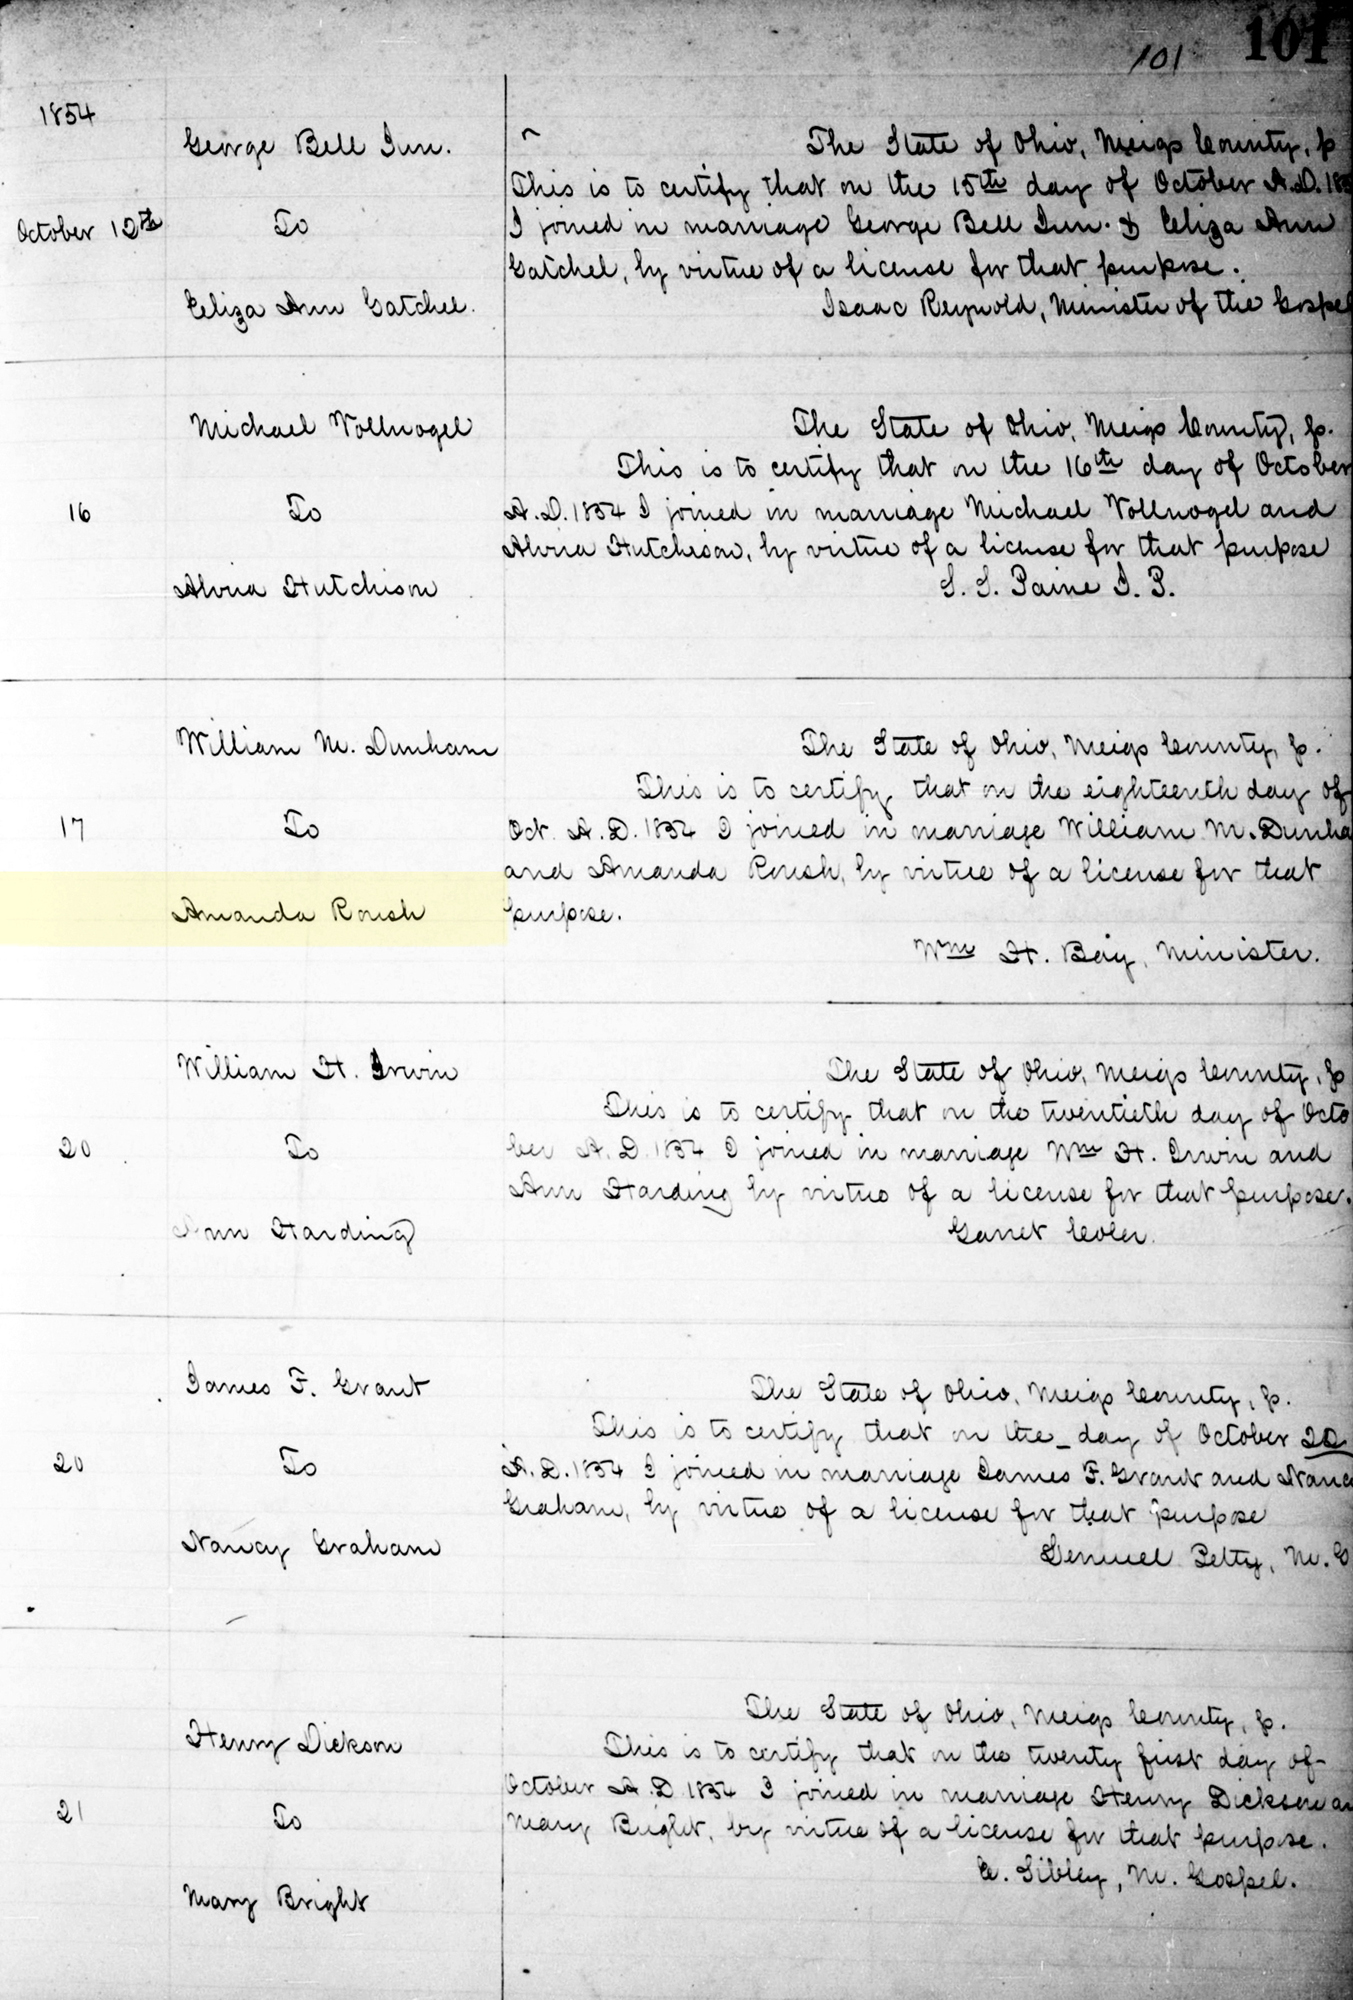 101 101
1854
George Bell Jun.
October 12th
To
Eliza Ann Gatchel.
The State of Ohio, Meigs County, ss
This is to certify that on the 15th day of October A.D. 185
I joined in marriage George Bell Jun. & Eliza Ann
Gatchel, by virtue of a license for that purpose.
Isaac Reynold, Minister of the Gospel
Michael Vollnogel
16
To
Alvira Hutchison
The State of Ohio, Meigs County, ss.
This is to certify that on the 16th day of October
A.D. 1854 I joined in marriage Michael Vollnogel and
Alvira Hutchison, by virtue of a license for that purpose
S. S. Paine J. P.
William M. Dunham
17
To
Amanda Roush
The State of Ohio, Meigs County, ss.
This is to certify that on the eighteenth day of
Oct. A.D. 1854 I joined in marriage William M. Dunha
and Amanda Roush, by virtue of a license for that
purpose.
Wm H. Bay, Minister.
William H. Irwin
20
To
Ann Harding
The State of Ohio, Meigs County, ss
This is to certify that on the twentieth day of Octo
ber A.D. 1854 I joined in marriage Wm H. Irwin and
Ann Harding by virtue of a license for that purpose.
Garret Coler.
James F. Grant
20
To
Nancy Graham
The State of Ohio, Meigs County, ss.
This is to certify that on the _ day of October 20
A.D. 1854 I joined in marriage James F. Grant and Nanc
Graham, by virtue of a license for that purpose
Lemuel Petty, M. G
Henry Dickson
21
To
Mary Bright
The State of Ohio, Meigs County, ss.
This is to certify that on the twenty first day of
October A.D. 1854 I joined in marriage Henry Dickson an
Mary Bright, by virtue of a license for that purpose.
A. Sibley, M. Gospel.